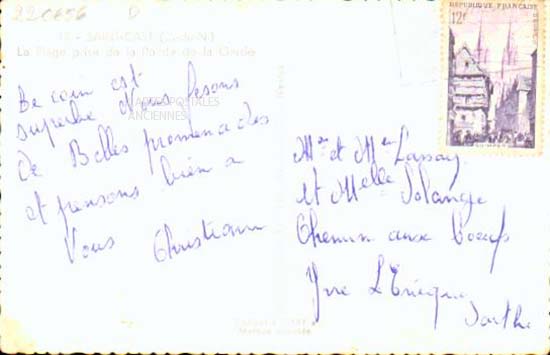 220656 D
12 - SAINT-CAST (C.-du-N.)
La Plage prise de la Pointe de la Garde
Ce coin est
superbe Nous fesons
De Belles promenades
et pensons bien a
Vous Christiane
CARTES POSTALES
ANCIENNES
REPUBLIQUE FRANÇAISE
12f
Quimper
Mr et Mme Lassay
et Melle Solange
Chemin aux boeufs
Yvré L'Evêque
Sarthe